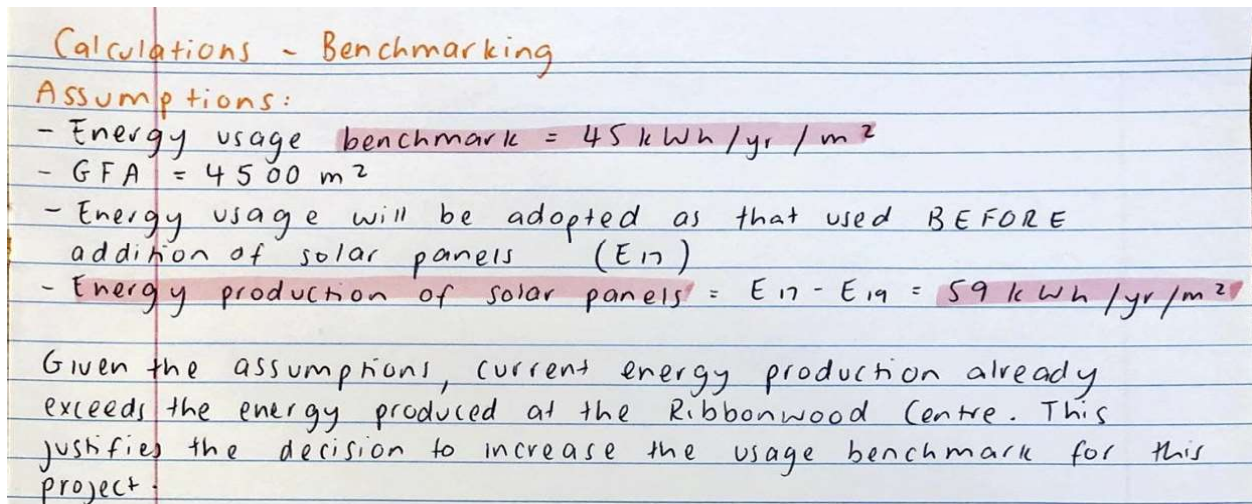 Calculations - Benchmarking
Assumptions:
- Energy usage benchmark = 45 kWh/yr/m²
- GFA = 4500 m²
- Energy usage will be adopted as that used BEFORE
addition of solar panels (E₁₇)
- Energy production of solar panels = E₁₇ - E₁₉ = 59 kWh/yr/m²
Given the assumptions, current energy production already
exceeds the energy produced at the Ribbonwood Centre. This
justifies the decision to increase the usage benchmark for this
project.